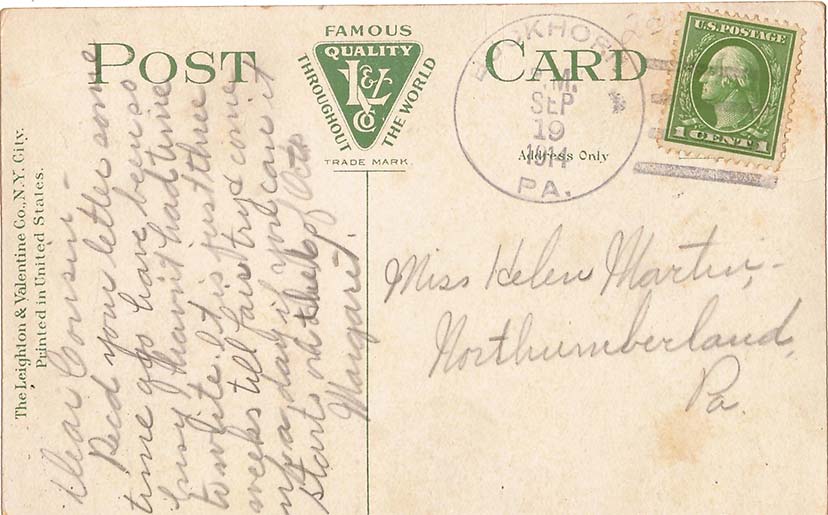 POST CARD
FAMOUS
QUALITY
L&V
Co
THROUGHOUT THE WORLD
TRADE MARK.
Address Only
BUCKHORN
P.M.
SEP
19
1914
PA.
U.S. POSTAGE
1 CENT 1
The Leighton & Valentine Co., N.Y. City.
Printed in United States.
Dear Cousin-
Recd your letter some
time ago have been so
busy I havn't had time
to write. It is just three
weeks till fair try & come
up a day if you can it
starts on the of Oct
Margaret.
Miss Helen Martin,
Northumberland,
Pa.